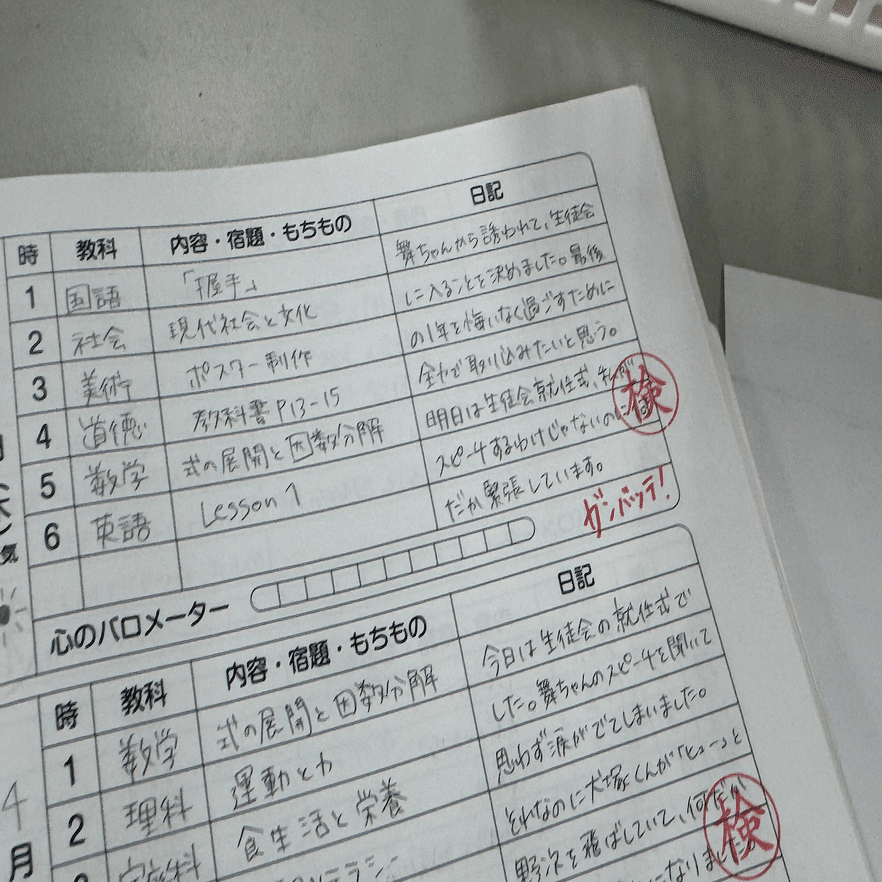 時 教科 内容・宿題・もちもの 日記
1 国語 「握手」 舞ちゃんから誘われて、生徒会
2 社会 現代社会と文化 に入ることを決めました。最後
3 美術 ポスター制作 の1年を悔いなく過ごすために
4 道徳 教科書P13-15 全力で取り込みたいと思う。
5 数学 式の展開と因数分解 明日は生徒会就任式、私が
6 英語 Lesson 1 スピーチするわけじゃないのに
だが緊張しています。
検
ガンバッテ!
気
心のバロメーター
時 教科 内容・宿題・もちもの 日記
1 数学 式の展開と因数分解 今日は生徒会の就任式で
2 理科 運動と力 した。舞ちゃんのスピーチを聞いて
食生活と栄養 思わず涙がでてしまいました。
それなのに犬塚くんが「ヒューー」と
野次を飛ばしていて、何だか
になりました
検
4
月